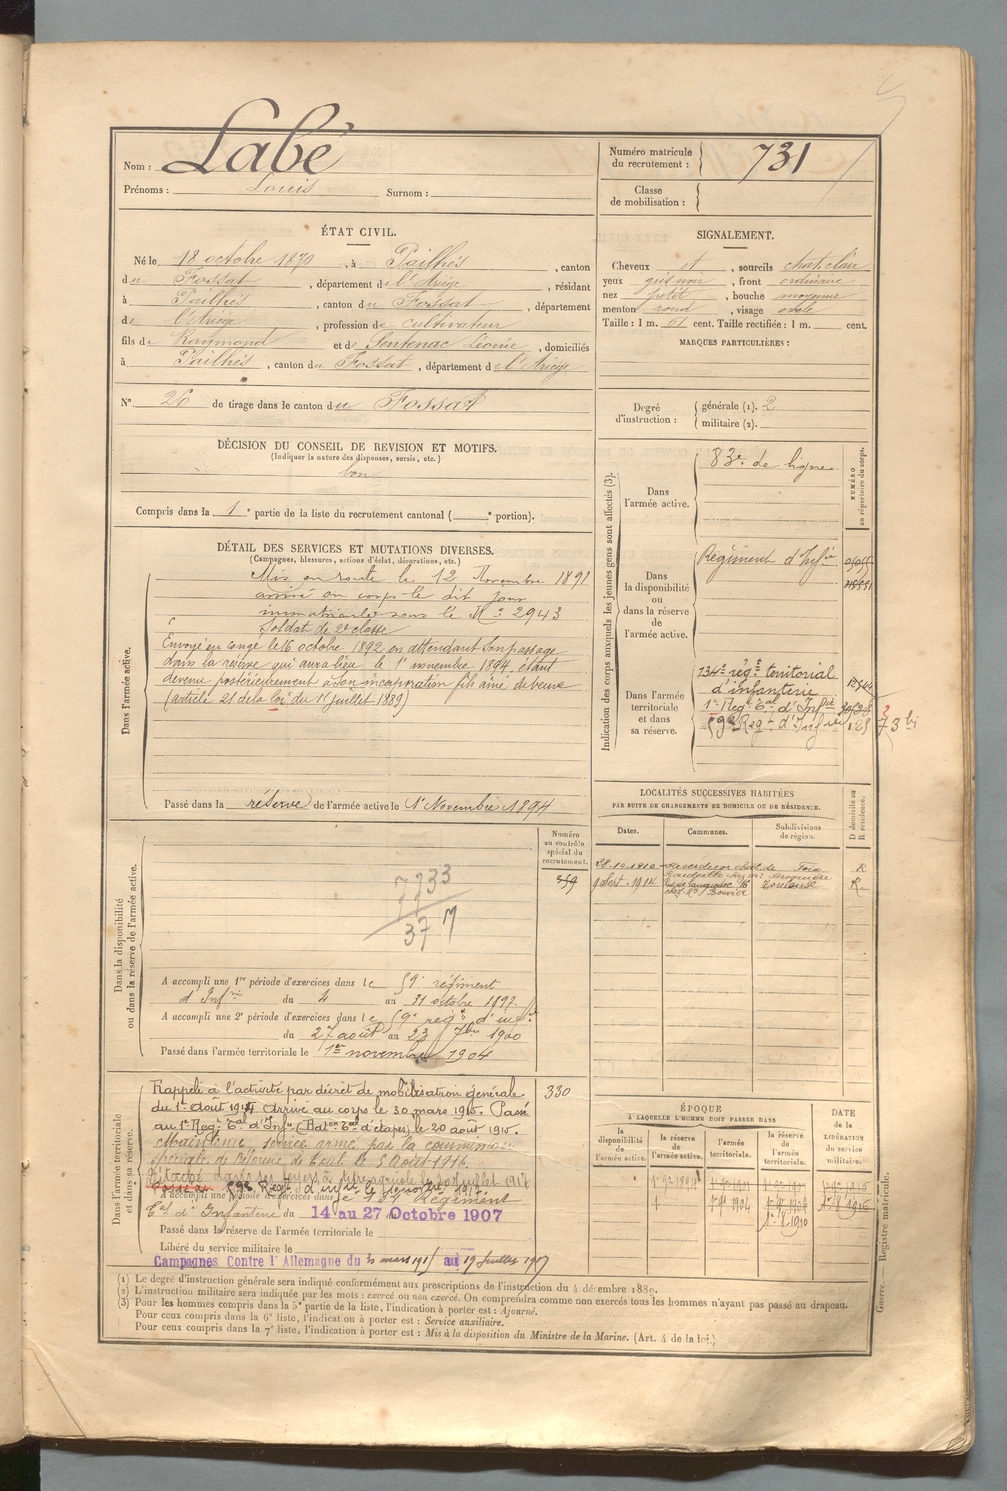 Nom : Labé
Prénoms : Louis Surnom :
Numéro matricule du recrutement : 731
Classe de mobilisation :
ÉTAT CIVIL.
Né le 18 octobre 1870, à Pailhès, canton
du Fossat, département de l'Ariège, résidant
à Pailhès, canton du Fossat, département
de l'Ariège, profession de cultivateur
fils de Raymond et de Sentenac Léonie, domiciliés
à Pailhès, canton du Fossat, département de l'Ariège
N° 26 de tirage dans le canton du Fossat
SIGNALEMENT.
Cheveux et, sourcils chat. clair
yeux gris noir, front ordinaire
nez petit, bouche moyenne
menton rond, visage ovale
Taille : 1 m. 61 cent. Taille rectifiée : 1 m. cent.
MARQUES PARTICULIÈRES :
Degré d'instruction : générale (1). 2
militaire (2).
DÉCISION DU CONSEIL DE REVISION ET MOTIFS.
(Indiquer la nature des dispenses, sursis, etc.)
bon
Compris dans la 1e partie de la liste du recrutement cantonal ( e portion).
DÉTAIL DES SERVICES ET MUTATIONS DIVERSES.
(Campagnes, blessures, actions d'éclat, décorations, etc.)
Dans l'armée active.
Mis en route le 12 Novembre 1891
arrivé au corps le dit jour
immatriculé sous le N° 2943
Soldat de 2e classe
Envoyé en congé le 16 octobre 1892 en attendant son passage
dans la réserve qui aura lieu le 1er novembre 1894 étant
devenu postérieurement à son incorporation fils aîné de veuve
(article 21 de la loi du 15 juillet 1889)
Passé dans la réserve de l'armée active le 1er Novembre 1894
Indication des corps auxquels les jeunes gens sont affectés (3).
NUMÉRO au répertoire du corps.
Dans l'armée active.
83e de ligne
Dans la disponibilité ou dans la réserve de l'armée active.
Régiment d'Infie
Dans l'armée territoriale et dans sa réserve.
134e régt territorial
d'infanterie
1er Regt Tal d'Infie
59e Regt d'Infie
73 bis
LOCALITÉS SUCCESSIVES HABITÉES
PAR SUITE DE CHANGEMENTS DE DOMICILE OU DE RÉSIDENCE.
Dates. Communes. Subdivisions de région. D domicile ou R résidence.
Foix R
1914 Toulouse R
Dans la disponibilité ou dans la réserve de l'armée active.
Numéro au contrôle spécial du recrutement.
359
7733
377
A accompli une 1re période d'exercices dans le 59e régiment
d'Infie du 4 au 31 octobre 1897.
A accompli une 2e période d'exercices dans le 59e regt d'inf
du 27 août au 23 7bre 1900
Passé dans l'armée territoriale le 1er novembre 1904
Dans l'armée territoriale et dans sa réserve.
330
Rappelé à l'activité par décret de mobilisation générale
du 1er Août 1914 Arrivé au corps le 30 mars 1915. Passé
au 1er Regt Tal d'Infie (Baton Tal d'étapes) le 20 août 1915.
Maintenu service armé par la commission
spéciale de réforme de Toul le 5 Août 1916.
A accompli une période d'exercices dans le Régiment
Tal d'Infanterie du 14 au 27 Octobre 1907
Passé dans la réserve de l'armée territoriale le
Libéré du service militaire le
Campagnes Contre l'Allemagne du 30 mars 1915 au 19 Juillet 1917
ÉPOQUE
À LAQUELLE L'HOMME DOIT PASSER DANS
la disponibilité de l'armée active.
la réserve de l'armée active.
l'armée territoriale.
la réserve de l'armée territoriale.
DATE de la LIBÉRATION du service militaire.
1er 9bre 1894
1er 9bre 1904
Registre matricule.
Guerre.
(1) Le degré d'instruction générale sera indiqué conformément aux prescriptions de l'instruction du 4 décembre 1889.
(2) L'instruction militaire sera indiquée par les mots : exercé ou non exercé. On comprendra comme non exercés tous les hommes n'ayant pas passé au drapeau.
(3) Pour les hommes compris dans la 5e partie de la liste, l'indication à porter est : Ajourné.
Pour ceux compris dans la 6e liste, l'indication à porter est : Service auxiliaire.
Pour ceux compris dans la 7e liste, l'indication à porter est : Mis à la disposition du Ministre de la Marine. (Art. 4 de la loi.)